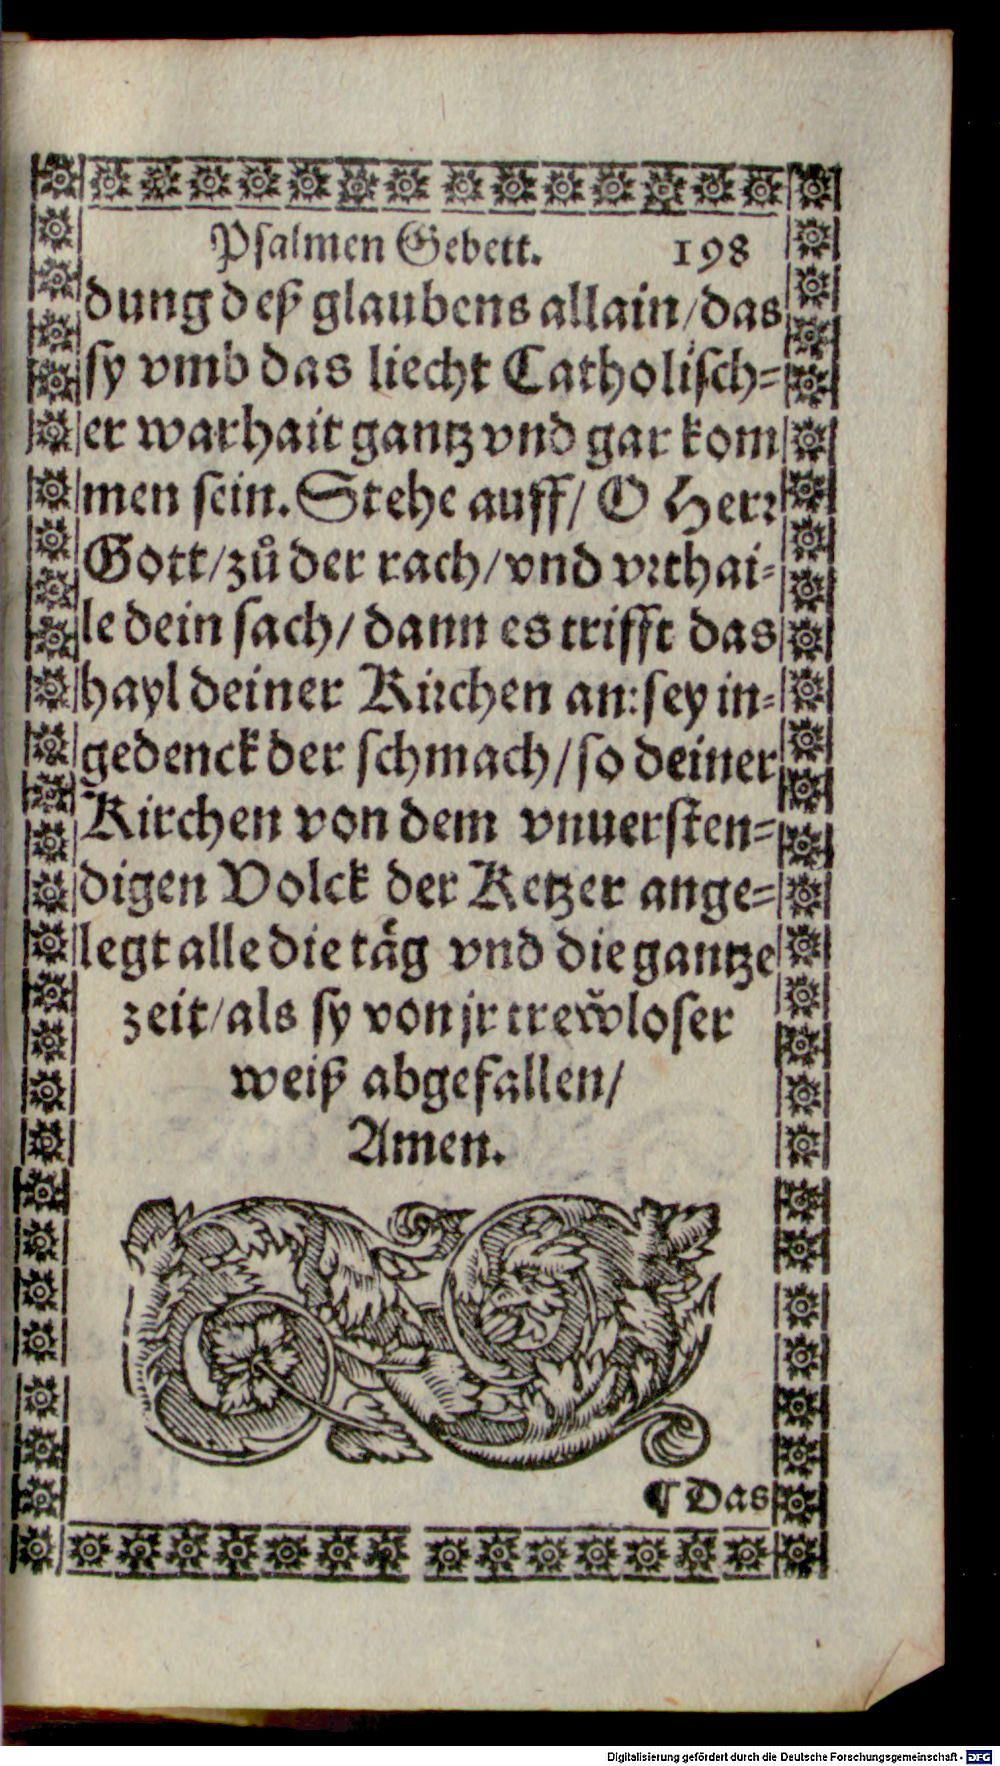 Psalmen Gebett. 198
dung deß glaubens allain/das
sy vmb das liecht Catholisch=
er warhait gantz vnd gar kom
men sein. Stehe auff/ O Herr
Gott/zů der rach/vnd vrthai=
le dein sach/ dann es trifft das
hayl deiner Kirchen an: sey in=
gedenck der schmach/so deiner
Kirchen von dem vnuersten=
digen Volck der Ketzer ange=
legt alle die täg vnd die gantze
zeit/als sy von jr trewloser
weiß abgefallen/
Amen.
¶ Das
Digitalisierung gefördert durch die Deutsche Forschungsgemeinschaft - DFG